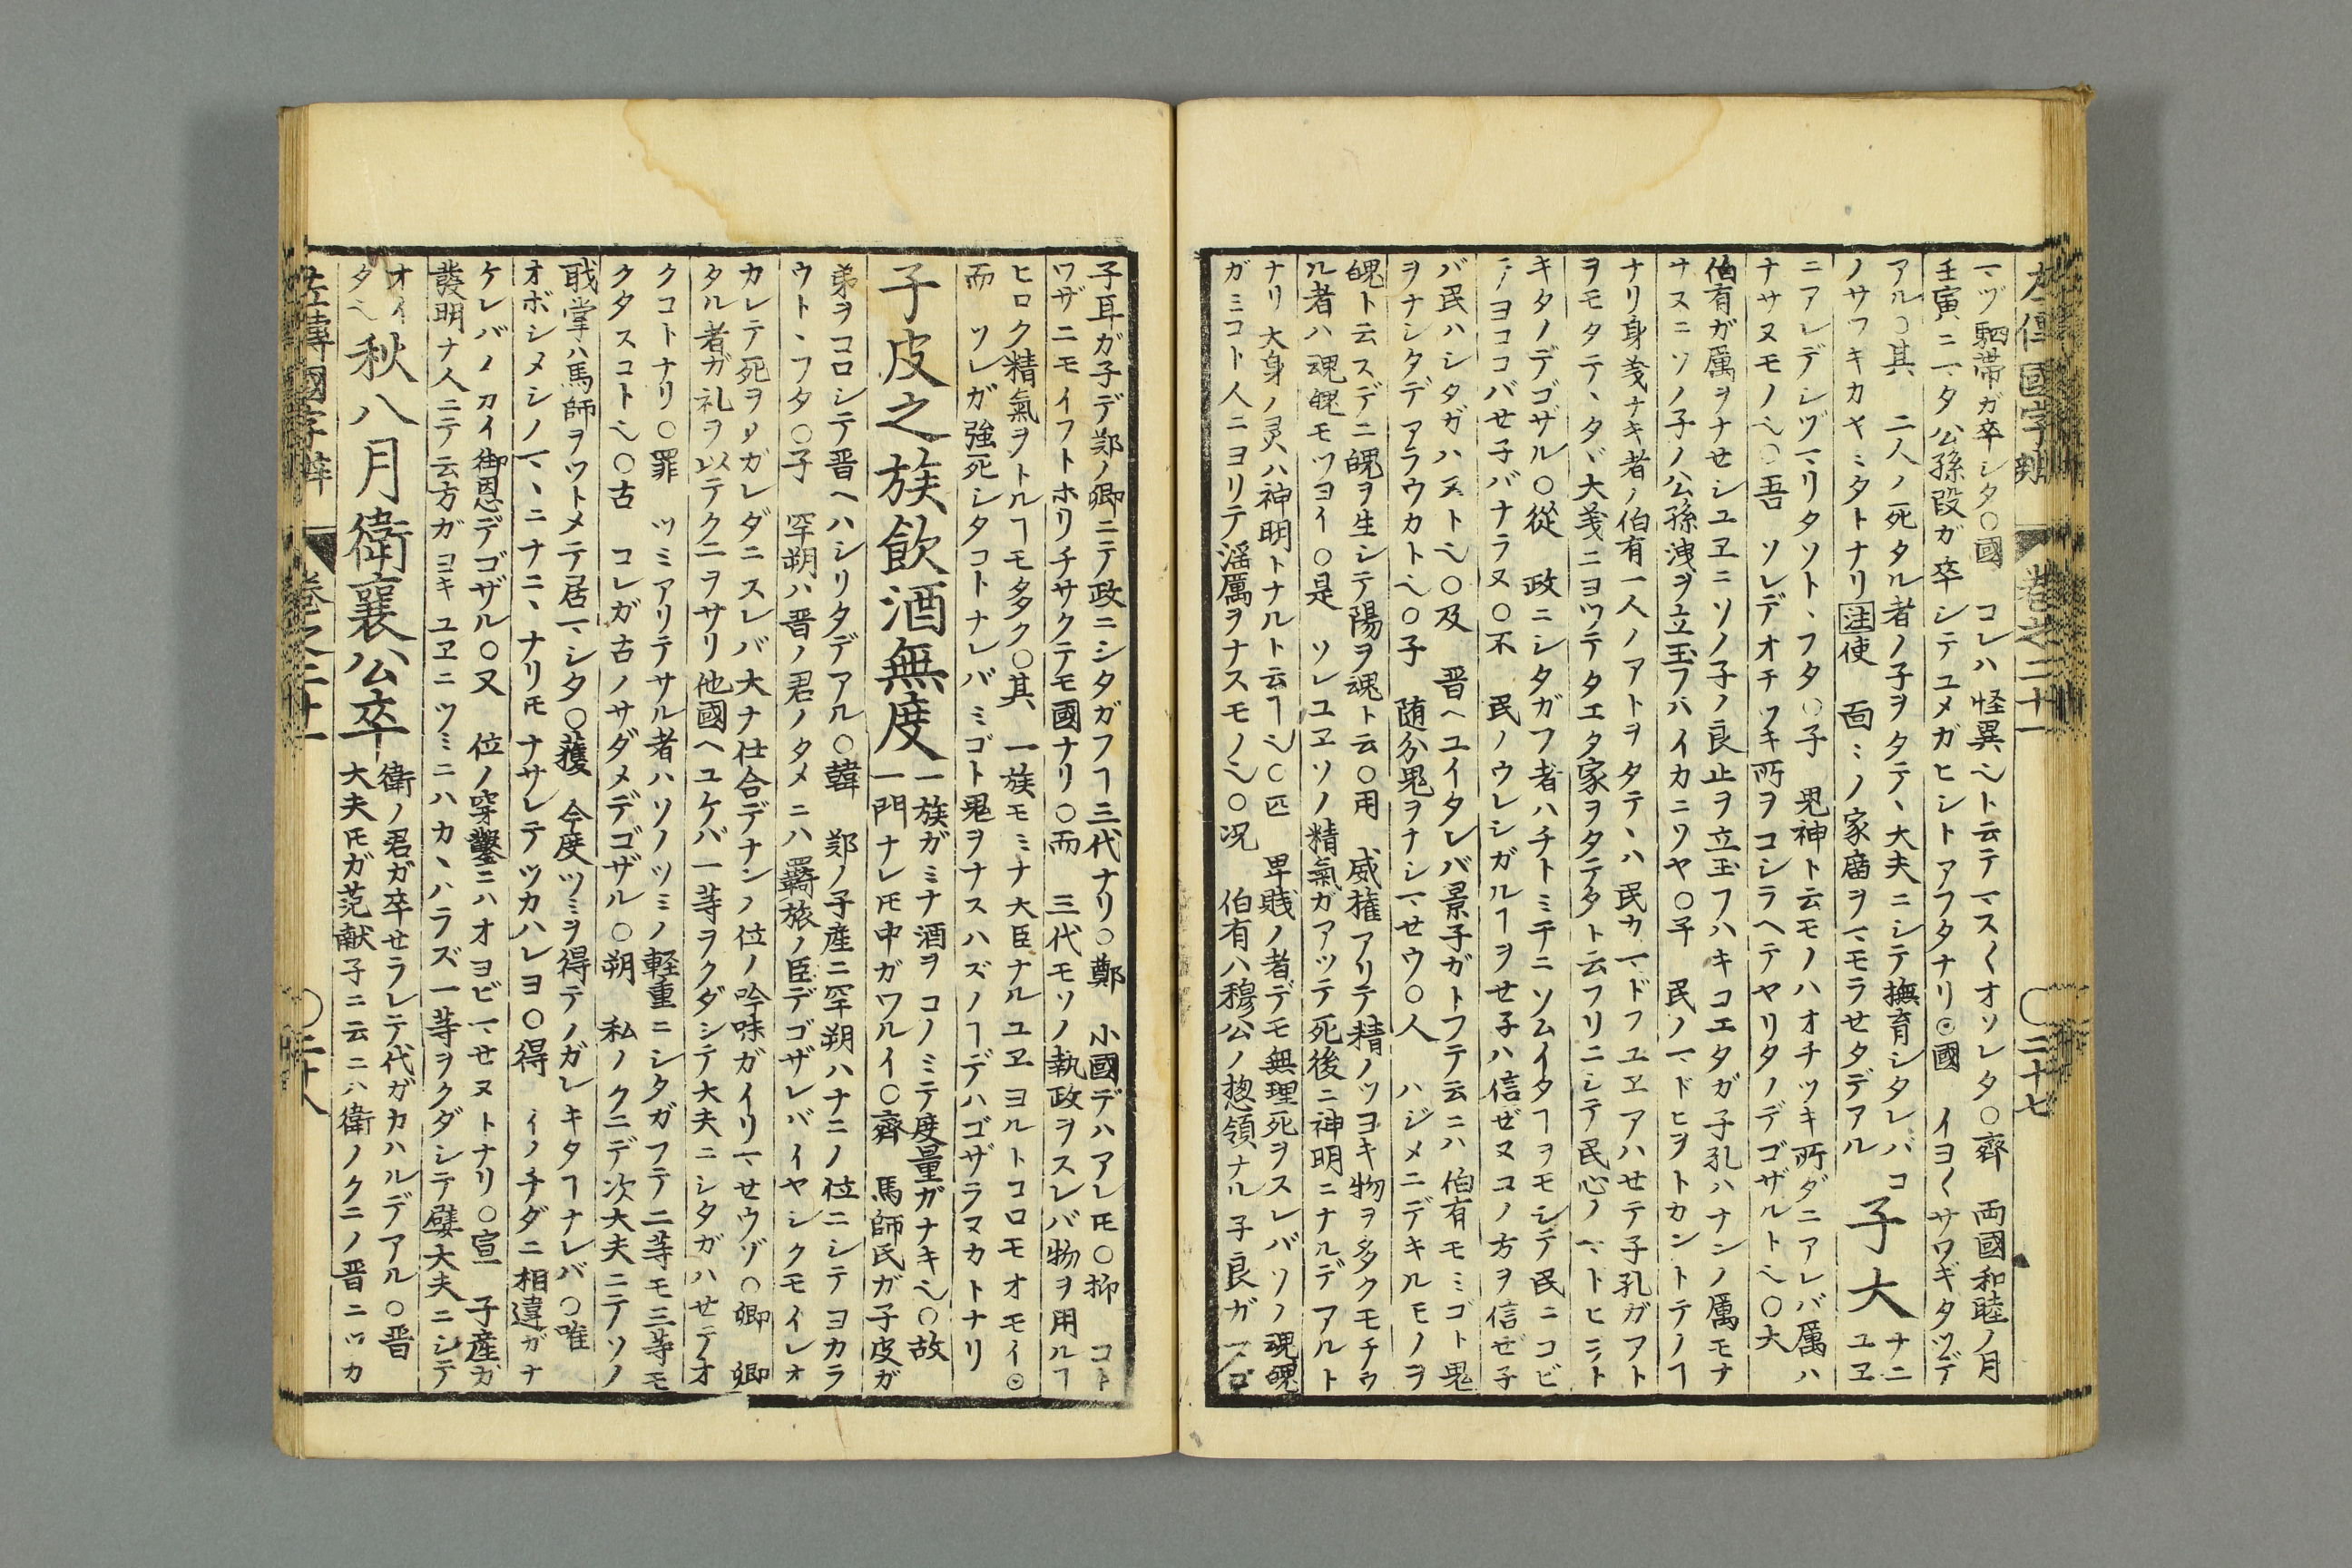 左傳國字辯 巻之二十一 〇二十七
マヅ駟帯ガ卒シタ〇國 コレハ怪異ヘト云テマス〱オソレタ〇齊 両國和睦ノ月
壬寅ニマタ公孫段ガ卒シテユメガヒシトアフタナリ◉國 イヨ〱サワギタツデ
アル〇其 二人ノ死タル者ノ子ヲタテヽ大夫ニシテ撫育シタレバコ
ノサワキカヤミタトナリ注使 面ミノ家庿ヲマモラせタデアル
子大
ナニ
ユヱ
ニアレデシヅマリタソトヽフタ〇子 鬼神ト云モノハオチツキ所ダニアレバ厲ハ
ナサヌモノヘ〇吾 ソレデオチツキ所ヲコシラヘテヤリタノデゴザルトヘ〇大
伯有ガ厲ヲナせシユヱニソノ子ノ良止ヲ立玉フハキコエタガ子孔ハナンノ厲モナ
サヌニソノ子ノ公孫洩ヲ立玉フハイカニソヤ〇子 民ノマドヒヲトカントテノヿ
ナリ身義ナキ者ノ伯有一人ノアトヲタテヽハ民カマドフユヱアハせテ子孔ガアト
ヲモタテヽタヾ大義ニヨツテタエタ家ヲタテタト云フリニシテ民心ノマトヒニト
キタノデゴザル〇從 政ニシタガフ者ハチトミチニソムイタヿヲモシテ民ニコビ
子ヨココバせ子バナラヌ〇不 民ノウレシガルヿヲせ子ハ信ぜヌコノ方ヲ信ぜ子
バ民ハシタガハヌトヘ〇及 晋ヘユイタレバ景子ガトフテ云ニハ伯有モミゴト鬼
ヲナシタデアラウカトヘ〇子 随分鬼ヲナシマせウ〇人 ハジメニデキルモノヲ
魄ト云スデニ魄ヲ生シテ陽ヲ魂ト云〇用 威権アリテ精ノツヨキ物ヲ多クモチウ
ル者ハ魂魄モツヨイ〇是 ソレユヱソノ精氣ガアツテ死後ニ神明ニナルデアルト
ナリ大身ノ灵ハ神明トナルト云ヿヘ〇匹 卑賎ノ者デモ無理死ヲスレバソノ魂魄
ガミコト人ニヨリテ滛厲ヲナスモノヘ〇况 伯有ハ穆公ノ惣領ナル子良ガマゴ
子耳ガ子デ郑ノ卿ニテ政ニシタガフヿ三代ナリ〇鄭 小國デハアレ𪜈〇抑 コト
ワザニモイフトホリチサクテモ國ナリ〇而 三代モソノ執政ヲスレバ物ヲ用ルヿ
ヒロク精氣ヲトルヿモ多ク〇其 一族モミナ大臣ナルユヱヨルトコロモオモイ◉
而 ソレガ強死シタコトナレバミゴト鬼ヲナスハズノヿデハゴザラヌカトナリ
子皮之族飲酒無度
一族ガミナ酒ヲコノミテ度量ガナキヘ〇故
一門ナレ𪜈中ガワルイ〇齊 馬師氏ガ子皮ガ
弟ヲコロシテ晋ヘハシリタデアル〇韓 郑ノ子産ニ罕朔ハナニノ位ニシテヨカラ
ウトヽフタ〇子 罕朔ハ晋ノ君ノタメニハ羇旅ノ臣デゴザレバイヤシクモイレオ
カレテ死ヲノガレダニスレバ大ナ仕合デナンノ位ノ吟味ガイリマせウゾ〇卿 卿
タル者ガ礼ヲ以テクニヲサリ他國ヘユケバ一等ヲクダシテ大夫ニシタガハせテオ
クコトナリ〇罪 ツミアリテサル者ハソノツミノ軽重ニシタガフテ二等モ三等モ
クタスコトヘ〇古 コレガ古ノサダメデゴザル〇朔 私ノクニデ次大夫ニテソノ
戝掌ハ馬師ヲツトメテ居マシタ〇獲 今度ツミヲ得テノガレキタヿナレバ〇唯
オボシメシノマヽニナニヽナリ𪜈ナサレテツカハレヨ〇得 イノチダニ相違ガナ
ケレバノカイ御恩デゴザル〇又 位ノ穿鑿ニハオヨビマせヌトナリ〇宣 子産ガ
發明ナ人ニテ云方ガヨキユヱニツミニハカヽハラズ一等ヲクダシテ嬖大夫ニシテ
オイ
タヘ
秋八月衛襄公卒
衛ノ君ガ卒せラレテ代ガカハルデアル〇晋
大夫𪜈ガ范献子ニ云ニハ衛ノクニノ晋ニツカ
左傳國字辯 巻之二十一 〇二十八